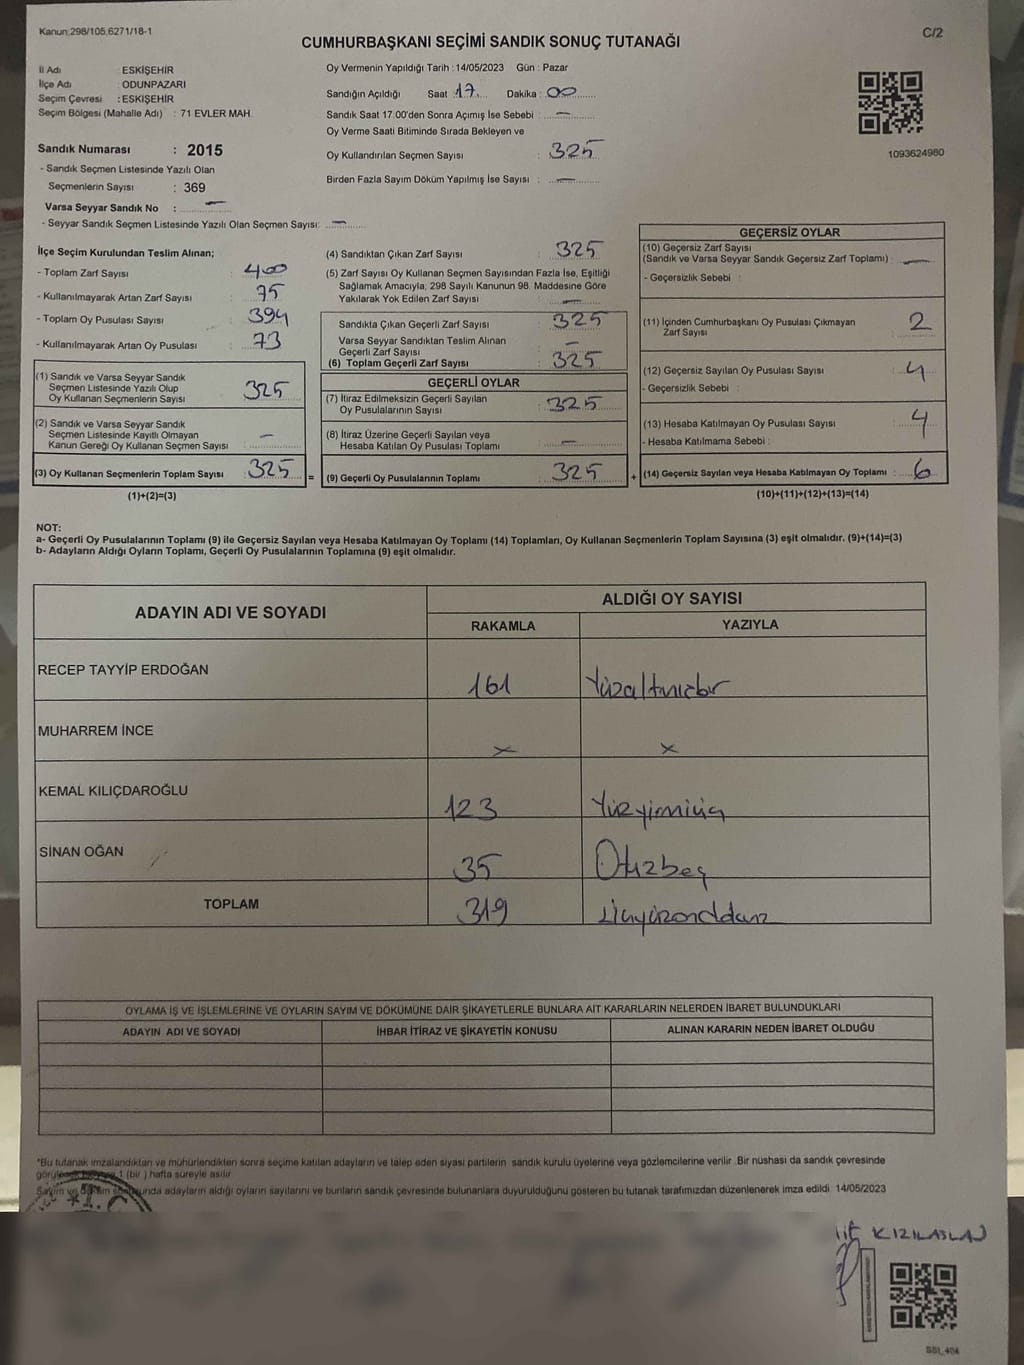 Kanun:298/105,6271/18-1
C/2
CUMHURBAŞKANI SEÇİMİ SANDIK SONUÇ TUTANAĞI
İl Adı : ESKİŞEHİR
İlçe Adı : ODUNPAZARI
Seçim Çevresi : ESKİŞEHİR
Seçim Bölgesi (Mahalle Adı) : 71 EVLER MAH.
Sandık Numarası : 2015
- Sandık Seçmen Listesinde Yazılı Olan
Seçmenlerin Sayısı : 369
Varsa Seyyar Sandık No : —
- Seyyar Sandık Seçmen Listesinde Yazılı Olan Seçmen Sayısı: —
Oy Vermenin Yapıldığı Tarih : 14/05/2023 Gün : Pazar
Sandığın Açıldığı Saat : 17 Dakika : 00
Sandık Saat 17.00'den Sonra Açımış İse Sebebi : —
Oy Verme Saati Bitiminde Sırada Bekleyen ve
Oy Kullandırılan Seçmen Sayısı : 325
Birden Fazla Sayım Döküm Yapılmış İse Sayısı : —
1093624980
İlçe Seçim Kurulundan Teslim Alınan;
- Toplam Zarf Sayısı : 400
- Kullanılmayarak Artan Zarf Sayısı : 75
- Toplam Oy Pusulası Sayısı : 394
- Kullanılmayarak Artan Oy Pusulası : 73
(1) Sandık ve Varsa Seyyar Sandık
Seçmen Listesinde Yazılı Olup
Oy Kullanan Seçmenlerin Sayısı : 325
(2) Sandık ve Varsa Seyyar Sandık
Seçmen Listesinde Kayıtlı Olmayan
Kanun Gereği Oy Kullanan Seçmen Sayısı : —
(3) Oy Kullanan Seçmenlerin Toplam Sayısı : 325
(1)+(2)=(3)
(4) Sandıktan Çıkan Zarf Sayısı : 325
(5) Zarf Sayısı Oy Kullanan Seçmen Sayısından Fazla İse, Eşitliği
Sağlamak Amacıyla, 298 Sayılı Kanunun 98. Maddesine Göre
Yakılarak Yok Edilen Zarf Sayısı : —
Sandıkta Çıkan Geçerli Zarf Sayısı : 325
Varsa Seyyar Sandıktan Teslim Alınan
Geçerli Zarf Sayısı : —
(6) Toplam Geçerli Zarf Sayısı : 325
GEÇERLİ OYLAR
(7) İtiraz Edilmeksizin Geçerli Sayılan
Oy Pusulalarının Sayısı : 325
(8) İtiraz Üzerine Geçerli Sayılan veya
Hesaba Katılan Oy Pusulası Toplamı : —
= (9) Geçerli Oy Pusulalarının Toplamı : 325
GEÇERSİZ OYLAR
(10) Geçersiz Zarf Sayısı
(Sandık ve Varsa Seyyar Sandık Geçersiz Zarf Toplamı) : —
- Geçersizlik Sebebi :
(11) İçinden Cumhurbaşkanı Oy Pusulası Çıkmayan
Zarf Sayısı : 2
(12) Geçersiz Sayılan Oy Pusulası Sayısı : 4
- Geçersizlik Sebebi :
(13) Hesaba Katılmayan Oy Pusulası Sayısı : 4
- Hesaba Katılmama Sebebi :
+ (14) Geçersiz Sayılan veya Hesaba Katılmayan Oy Toplamı : 6
(10)+(11)+(12)+(13)=(14)
NOT:
a- Geçerli Oy Pusulalarının Toplamı (9) ile Geçersiz Sayılan veya Hesaba Katılmayan Oy Toplamı (14) Toplamları, Oy Kullanan Seçmenlerin Toplam Sayısına (3) eşit olmalıdır. (9)+(14)=(3)
b- Adayların Aldığı Oyların Toplamı, Geçerli Oy Pusulalarının Toplamına (9) eşit olmalıdır.
ADAYIN ADI VE SOYADI
ALDIĞI OY SAYISI
RAKAMLA YAZIYLA
RECEP TAYYİP ERDOĞAN 161 Yüzaltmışbir
MUHARREM İNCE X X
KEMAL KILIÇDAROĞLU 123 Yüzyirmiüç
SİNAN OĞAN 35 Otuzbeş
TOPLAM 319
OYLAMA İŞ VE İŞLEMLERİNE VE OYLARIN SAYIM VE DÖKÜMÜNE DAİR ŞİKAYETLERLE BUNLARA AİT KARARLARIN NELERDEN İBARET BULUNDUKLARI
ADAYIN ADI VE SOYADI İHBAR İTİRAZ VE ŞİKAYETİN KONUSU ALINAN KARARIN NEDEN İBARET OLDUĞU
*Bu tutanak imzalandıktan ve mühürlendikten sonra seçime katılan adayların ve talep eden siyasi partilerin sandık kurulu üyelerine veya gözlemcilerine verilir. Bir nüshası da sandık çevresinde
1 (bir ) hafta süreyle asılır
Sayım ve adayların aldığı oyların sayılarını ve bunların sandık çevresinde bulunanlara duyurulduğunu gösteren bu tutanak tarafımızdan düzenlenerek imza edildi. 14/05/2023
T.C
KIZILASLAN